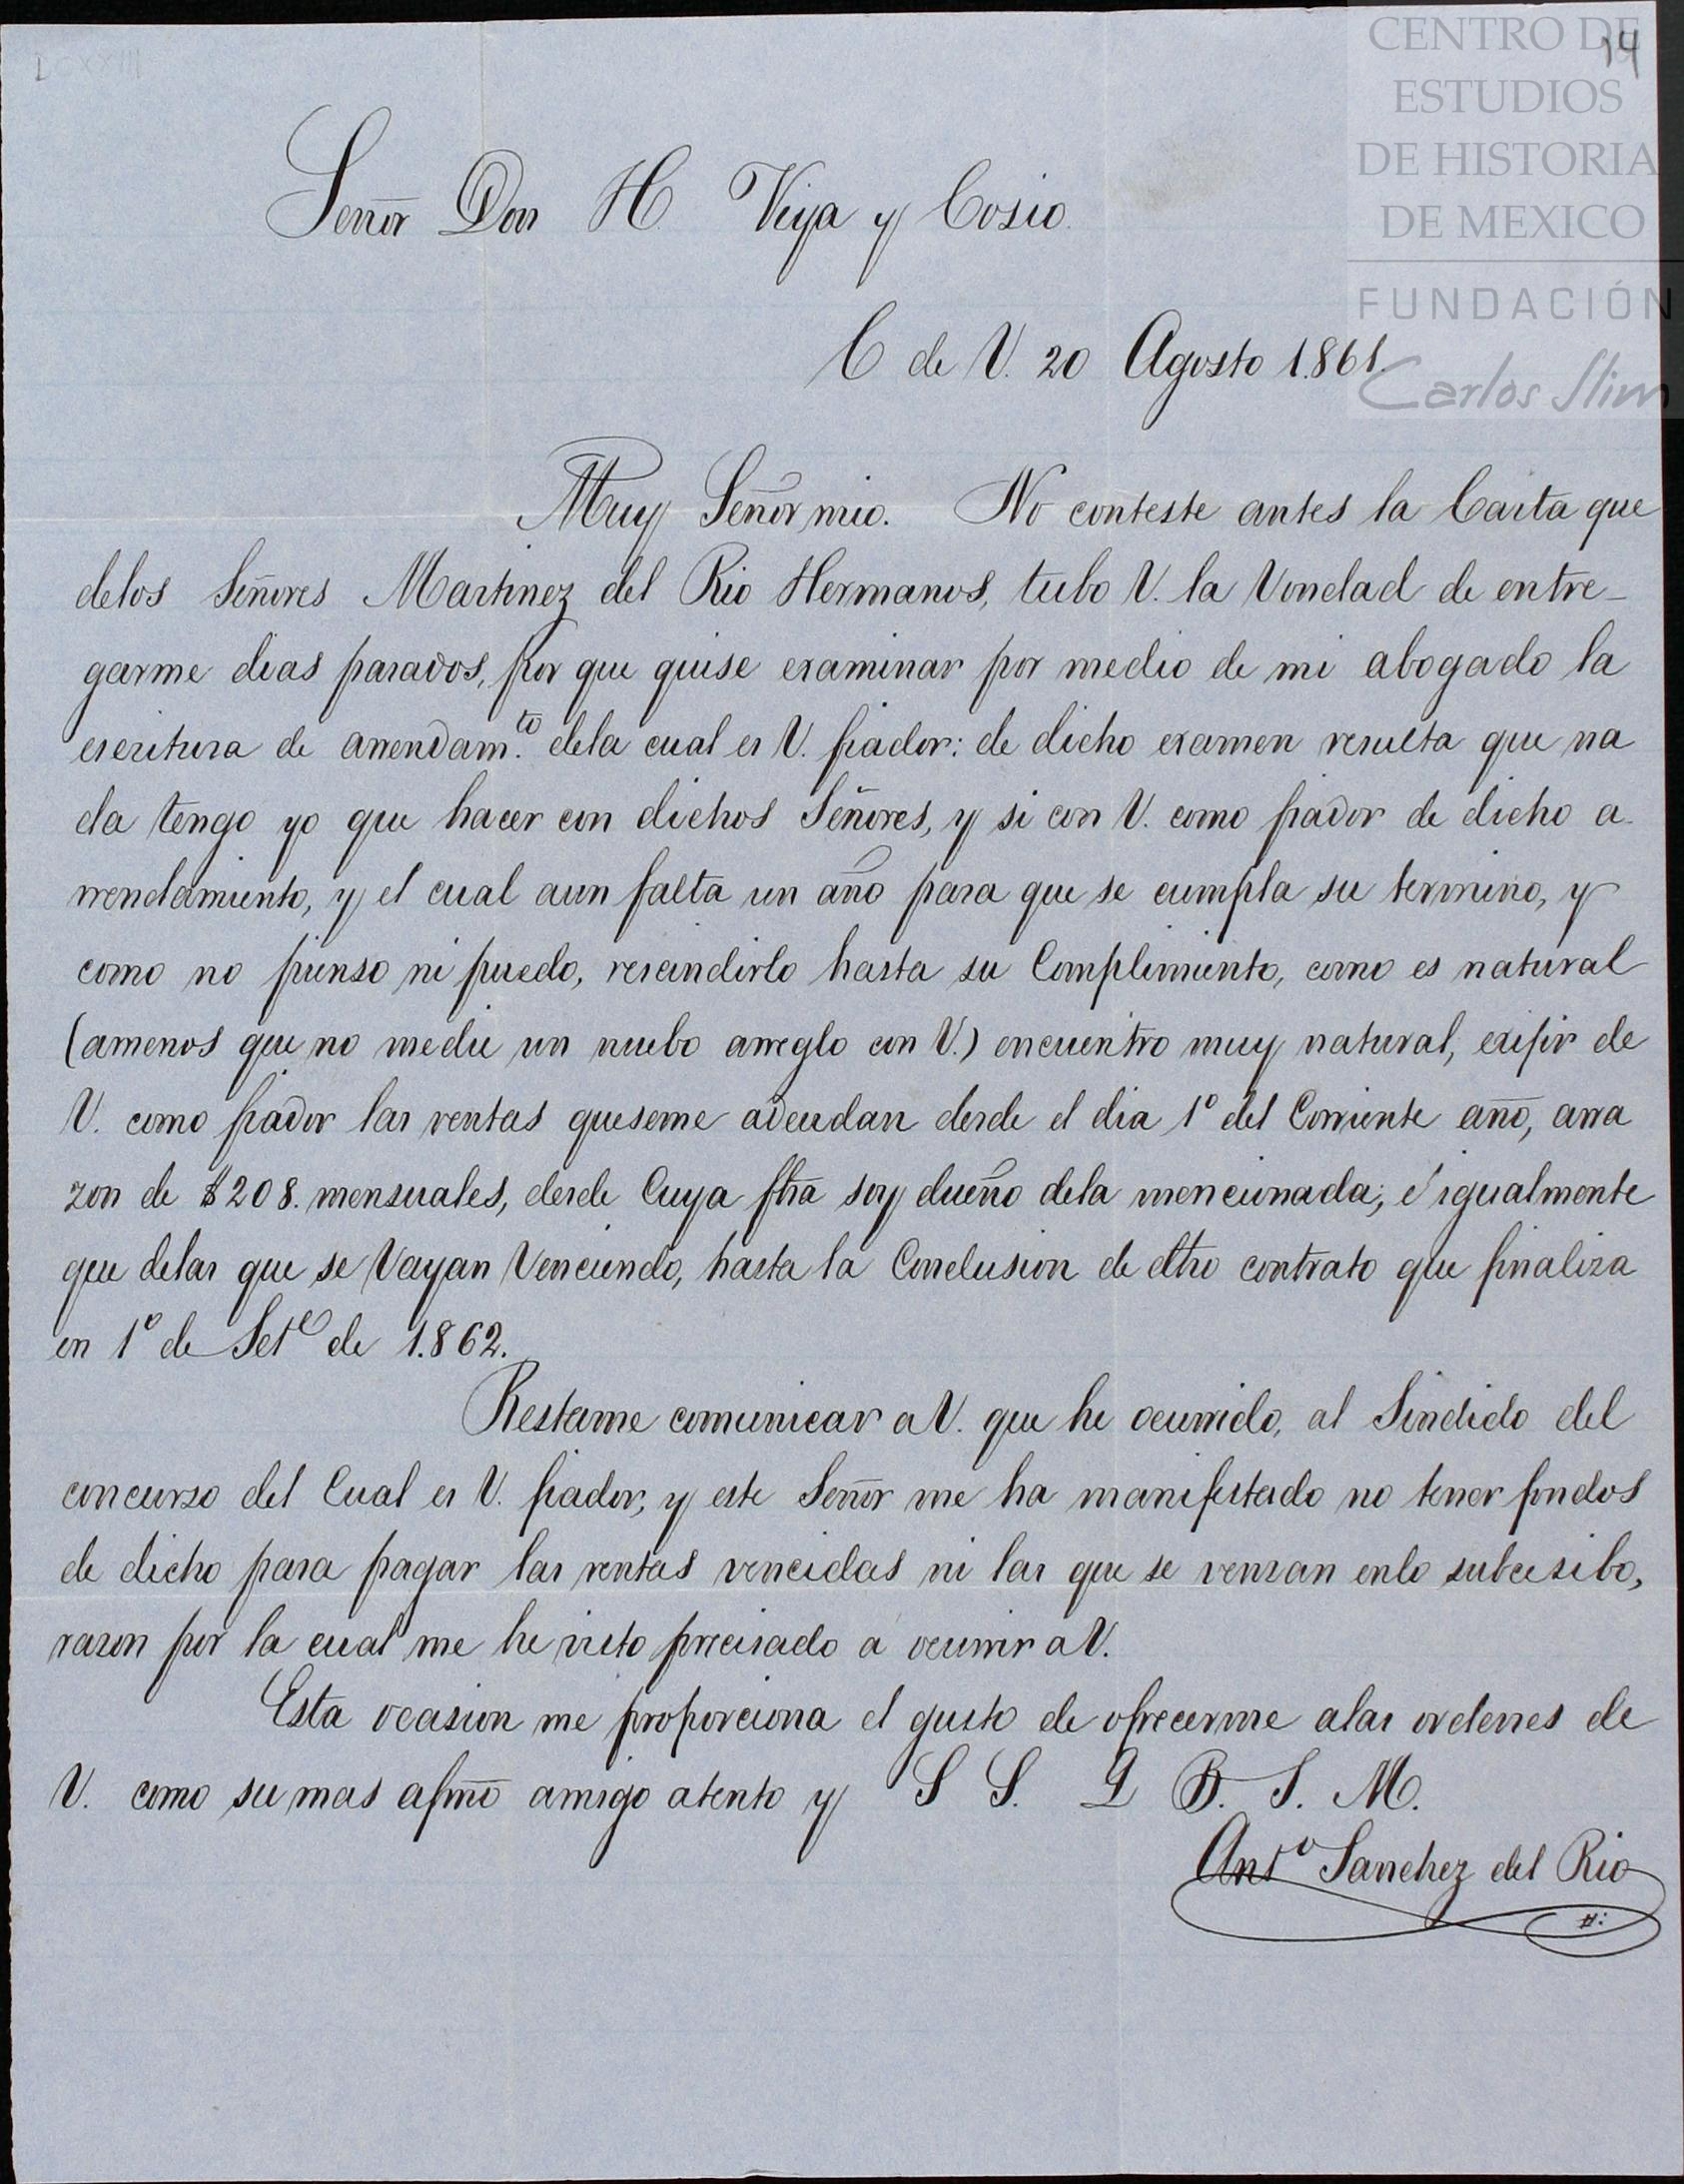 LCXXIII
14
CENTRO DE
ESTUDIOS
DE HISTORIA
DE MEXICO
FUNDACIÓN
Carlos Slim
Señor Don H. Vega y Cosio.
C de V. 20 Agosto 1.861.
Muy Señor mio. No conteste antes la Carta que
delos Señores Martinez del Rio Hermanos, tubo V. la Vondad de entre-
garme dias pasados, por que quise examinar por medio de mi abogado la
escritura de arrendam.to dela cual es V. fiador: de dicho examen resulta que na
da tengo yo que hacer con dichos Señores, y si con V. como fiador de dicho a
rrendamiento, y el cual aun falta un año para que se cumpla su termino, y
como no pienso ni puedo, rescindirlo hasta su Complimiento, como es natural
(amenos que no medie un nuebo arreglo con V.) encuentro muy natural, exijir de
V. como fiador las rentas queseme adeudan desde el dia 1º del Corriente año, arra
zon de $208. mensuales, desde Cuya fha soy dueño dela mencionada; é igualmente
que delas que se Vayan Venciendo, hasta la Conclusion de dho contrato que finaliza
en 1º de Sete de 1.862.
Restame comunicar a V. que he ocurrido, al Sindido del
concurso del Cual es V. fiador, y este Señor me ha manifestado no tener fondos
de dicho para pagar las rentas vencidas ni las que se venzan enlo subcesibo,
razon por la cual me he visto precisado a ocurrir a V.
Esta ocasion me proporciona el gusto de ofrecerme alas ordenes de
V. como su mas afmo amigo atento y S S. Q B. S. M.
Anto Sanchez del Rio